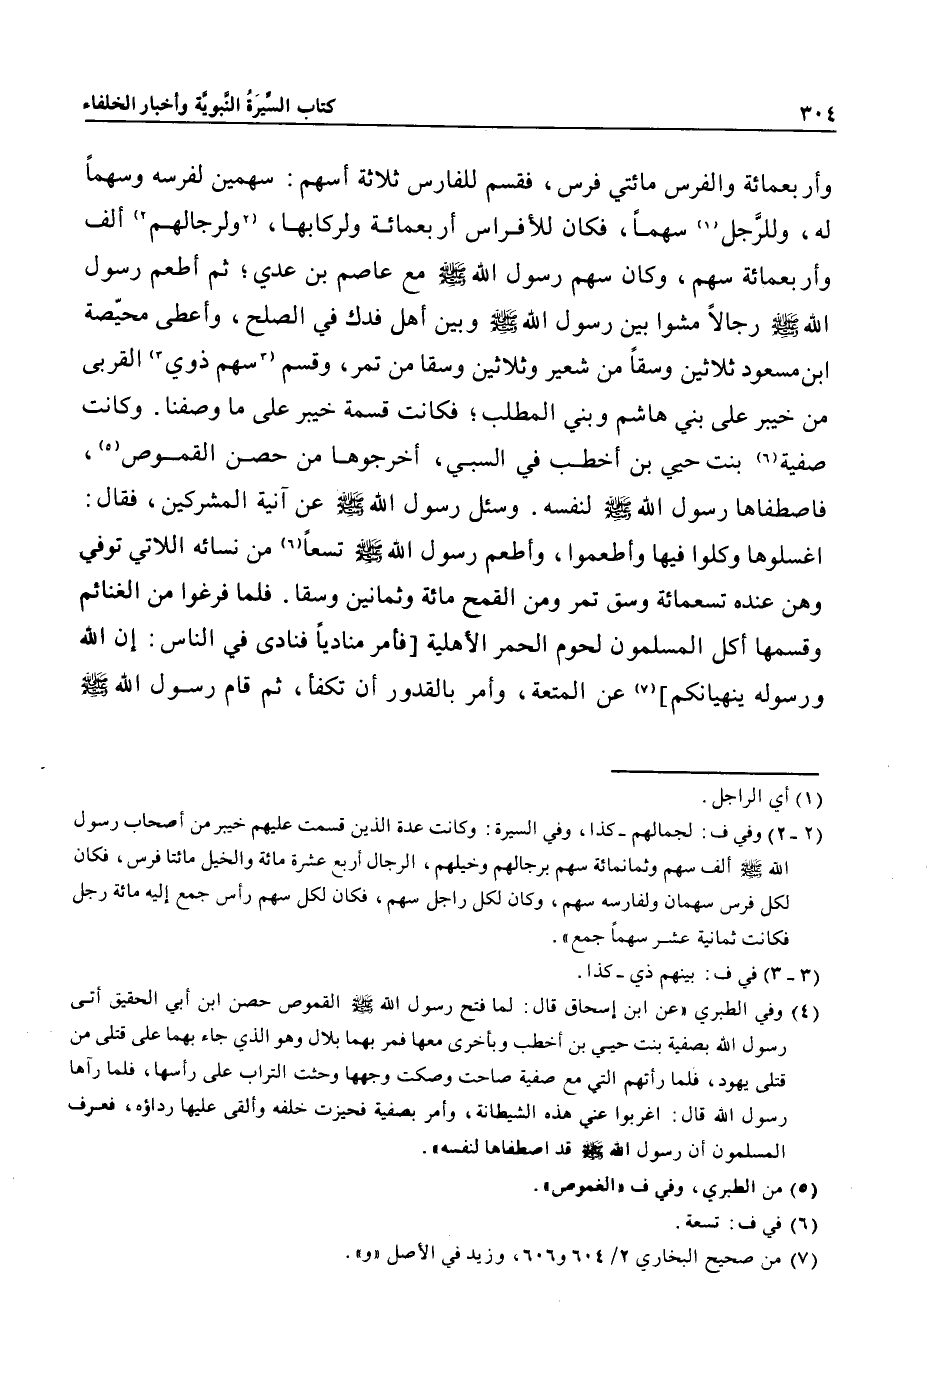 ٣٠٤
كتاب السِّيرَةُ النَّبويَّة وأخبار الخلفاء
وأربعمائة والفرس مائتي فرس، فقسم للفارس ثلاثة أسهم: سهمين لفرسه وسهماً
له، وللرَّجل(١) سهماً، فكان للأفراس أربعمائة ولركابها، (٢ولرجالهم٢) ألف
وأربعمائة سهم، وكان سهم رسول اللهﷺ مع عاصم بن عدي؛ ثم أطعم رسول
اللهﷺ رجالاً مشوا بين رسول اللهﷺ وبين أهل فدك في الصلح، وأعطى محيّصة
ابن مسعود ثلاثين وسقاً من شعير وثلاثين وسقا من تمر، وقسم (٣سهم ذوي٣) القربى
من خيبر على بني هاشم وبني المطلب؛ فكانت قسمة خيبر على ما وصفنا. وكانت
صفية(٦) بنت حيي بن أخطب في السبي، أخرجوها من حصن القموص(٥)،
فاصطفاها رسول اللهﷺ لنفسه. وسئل رسول اللهﷺ عن آنية المشركين، فقال:
اغسلوها وكلوا فيها وأطعموا، وأطعم رسول اللهﷺ تسعاً(٦) من نسائه اللاتي توفي
وهن عنده تسعمائة وسق تمر ومن القمح مائة وثمانين وسقا. فلما فرغوا من الغنائم
وقسمها أكل المسلمون لحوم الحمر الأهلية [فأمر منادياً فنادى في الناس: إن الله
ورسوله ينهيانكم](٧) عن المتعة، وأمر بالقدور أن تكفأ، ثم قام رسول اللهﷺ
(١) أي الراجل.
(٢ - ٢) وفي ف: لجمالهم - كذا، وفي السيرة: وكانت عدة الذين قسمت عليهم خيبر من أصحاب رسول
اللهﷺ ألف سهم وثمانمائة سهم برجالهم وخيلهم، الرجال أربع عشرة مائة والخيل مائتا فرس، فكان
لكل فرس سهمان ولفارسه سهم، وكان لكل راجل سهم، فكان لكل سهم رأس جمع إليه مائة رجل
فكانت ثمانية عشر سهماً جمع».
(٣ - ٣) في ف: بينهم ذي - كذا.
(٤) وفي الطبري «عن ابن إسحاق قال: لما فتح رسول اللهﷺ القموص حصن ابن أبي الحقيق أتى
رسول الله بصفية بنت حيي بن أخطب وبأخرى معها فمر بهما بلال وهو الذي جاء بهما على قتلى من
قتلى يهود، فلما رأتهم التي مع صفية صاحت وصكت وجهها وحثت التراب على رأسها، فلما رآها
رسول الله قال: اغربوا عني هذه الشيطانة، وأمر بصفية فحيزت خلفه وألقى عليها رداؤه، فعرف
المسلمون أن رسول اللهﷺ قد اصطفاها لنفسه».
(٥) من الطبري، وفي ف «الغموص».
(٦) في ف: تسعة.
(٧) من صحيح البخاري ٢/ ٦٠٤ و٦٠٦، وزيد في الأصل «و».